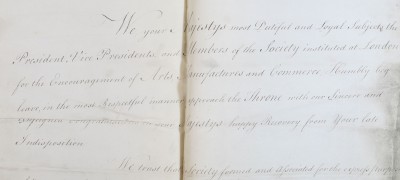 We your Majestys most Dutiful and Loyal Subjects the
President, Vice Presidents, and Members of the Society instituted at London
for the Encouragement of Arts Manufactures and Commerce Humbly beg
leave, in the most Respectful manner, approach the Throne with our Sincere and
on your Majestys happy Recovery from Your late
Indisposition
We trust that Society formed and